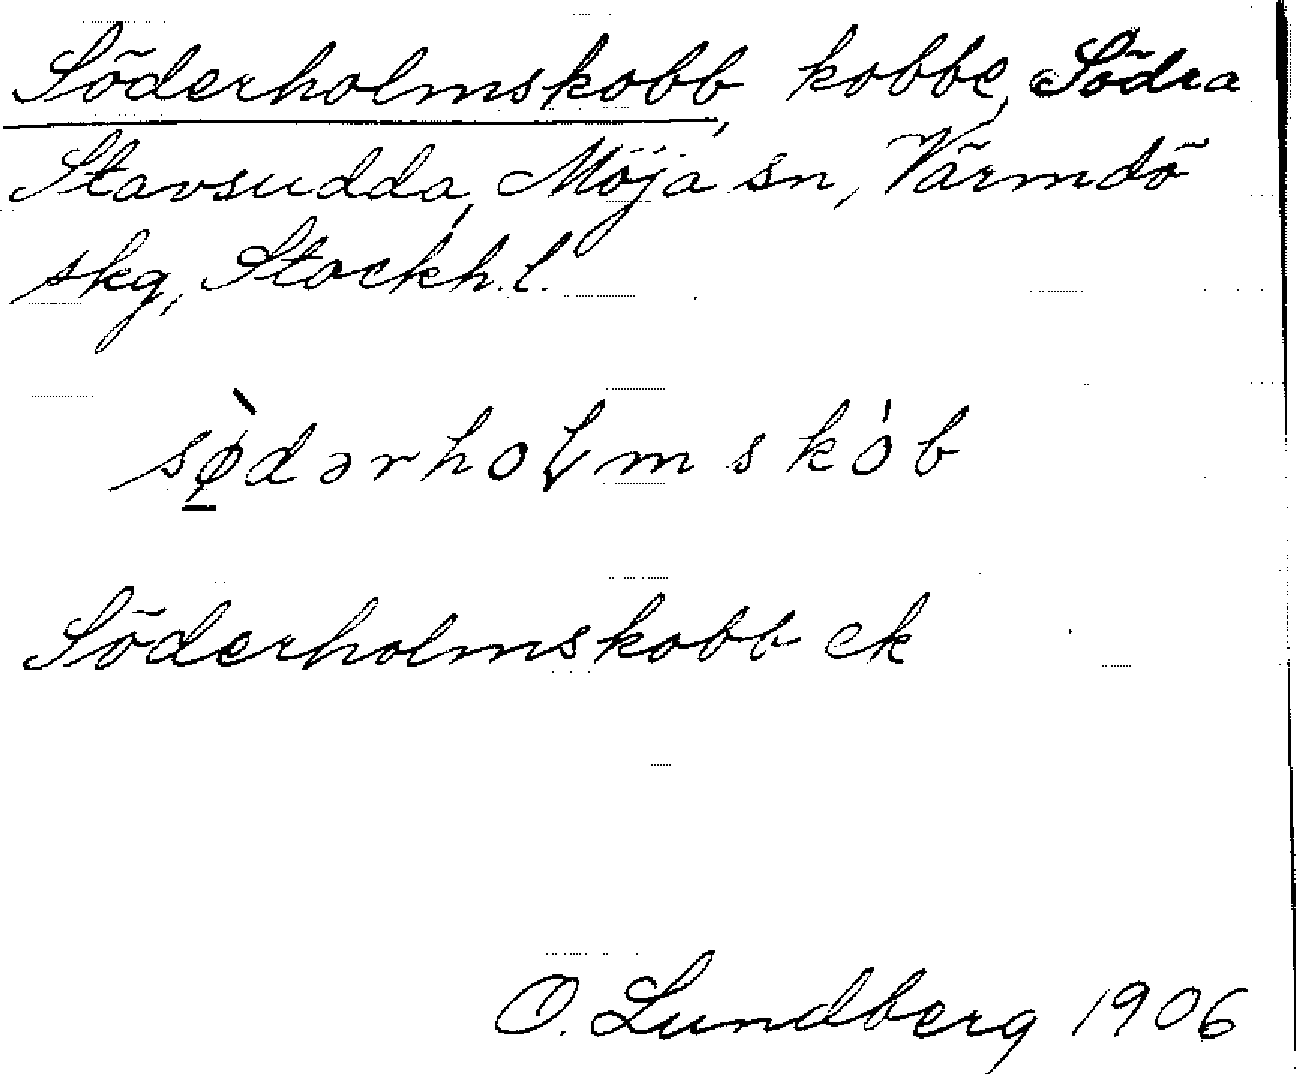 Söderholmskobb, kobbe, Södra
Stavsudda, Möja sn, Värmdö
skg, Stockh.l.
sø̀dərholmskòb
Söderholmskobb ek
O. Lundberg 1906